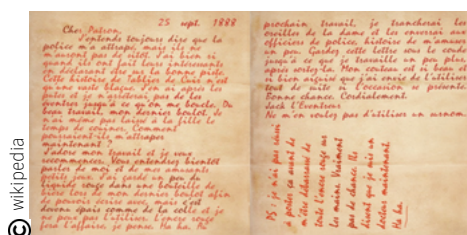 25 sept. 1888
Cher Patron,
J'entends toujours dire que la
police m'a attrapé, mais ils ne
m'auront pas de sitôt. J'ai bien ri
quand ils ont fait leurs intéressants
en déclarant être sur la bonne piste.
Cette histoire de Tablier de Cuir n'est
qu'une vaste blague. J'en ai après les
putes et je n'arrêterai pas de les
éventrer jusqu'à ce qu'on me boucle. Du
beau travail, mon dernier boulot. Je
n'ai même pas laissé à la fille le
temps de couiner. Comment
pourraient-ils m'attraper
maintenant ?
J'adore mon travail et je veux
recommencer. Vous entendrez bientôt
parler de moi et de mes amusants
petits jeux. J'ai gardé un peu du
liquide rouge dans une bouteille de
bière lors de mon dernier boulot afin
de pouvoir écrire avec, mais c'est
devenu épais comme de la colle et je
ne peux pas l'utiliser. L'encre rouge
fera l'affaire, je pense. Ha ha. Au
prochain travail, je trancherai les
oreilles de la dame et les enverrai aux
officiers de police, histoire de m'amuser
un peu. Gardez cette lettre sous le coude
jusqu'à ce que je travaille un peu plus,
après postez-la. Mon couteau est si beau et
si bien aiguisé que j'ai envie de l'utiliser
tout de suite si l'occasion se présente.
Bonne chance. Cordialement.
Jack l'Éventreur
Ne m'en voulez pas d'utiliser un surnom.
PS : je n'ai pas réussi
à poster ça avant de
m'être débarrassé de
toute l'encre rouge sur
les mains. Vraiment
pas de chance. Ils
disent que je suis un
docteur maintenant.
Ha ha.
© wikipedia